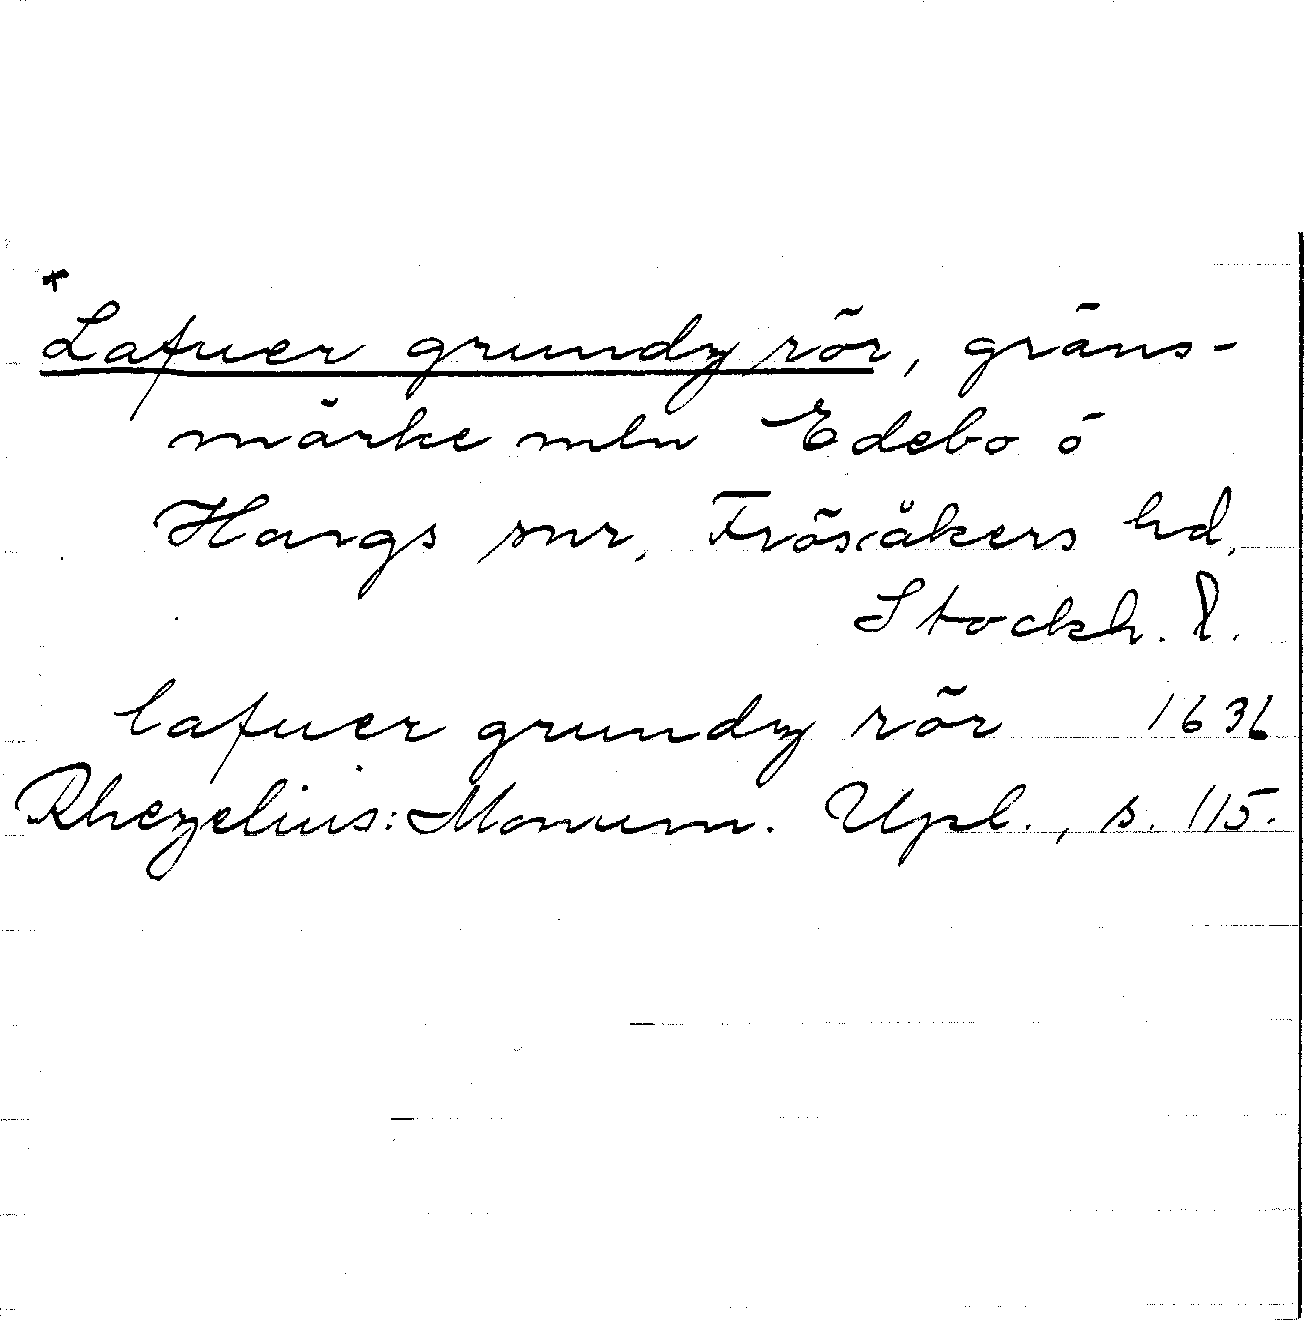 +
Lafuer grundz rör, gräns-
märke mln Edebo o
Hargs snr, Frösåkers hd,
Stockh. l.
lafuer grundz rör 1636
Rhezelius: Monum. Upl., s. 115.